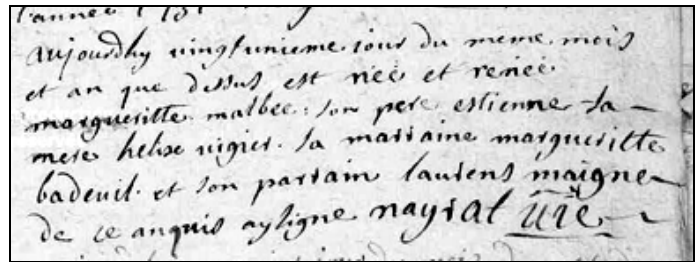 l'année
aujourdhy vingtunieme jour du meme mois
et an que dessus est néé et renéé
margueritte malbec son pere estienne sa
mere helixe vigier. sa marraine margueritte
badeuil. et son parrain laurens maigne
de ce anquis ay signe nayral